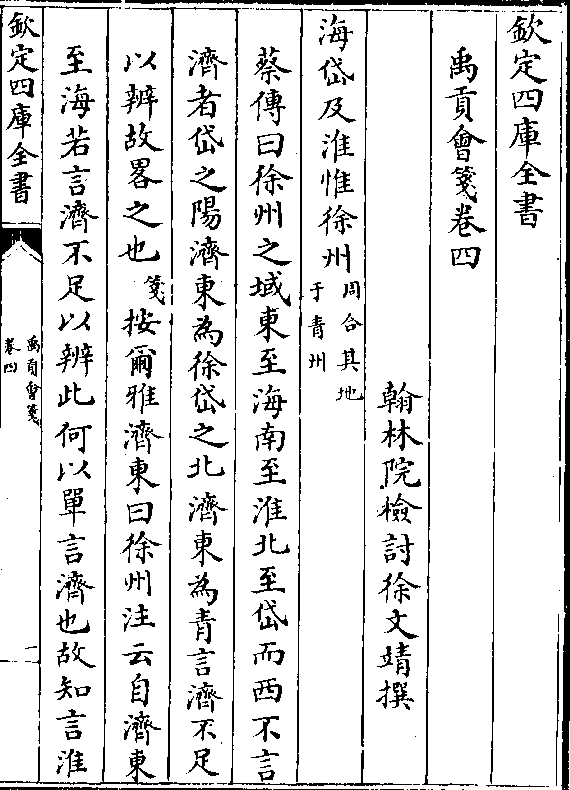 欽定四庫全書
禹貢會箋卷四
翰林院檢討徐文靖撰
海岱及淮惟徐州周合其地于青州
蔡傳曰徐州之域東至海南至淮北至岱而西不言
濟者岱之陽濟東為徐岱之北濟東為青言濟不足
以辨故畧之也箋按爾雅濟東曰徐州注云自濟東
至海若言濟不足以辨此何以單言濟也故知言淮
欽定四庫全書
禹貢會箋
卷四
一